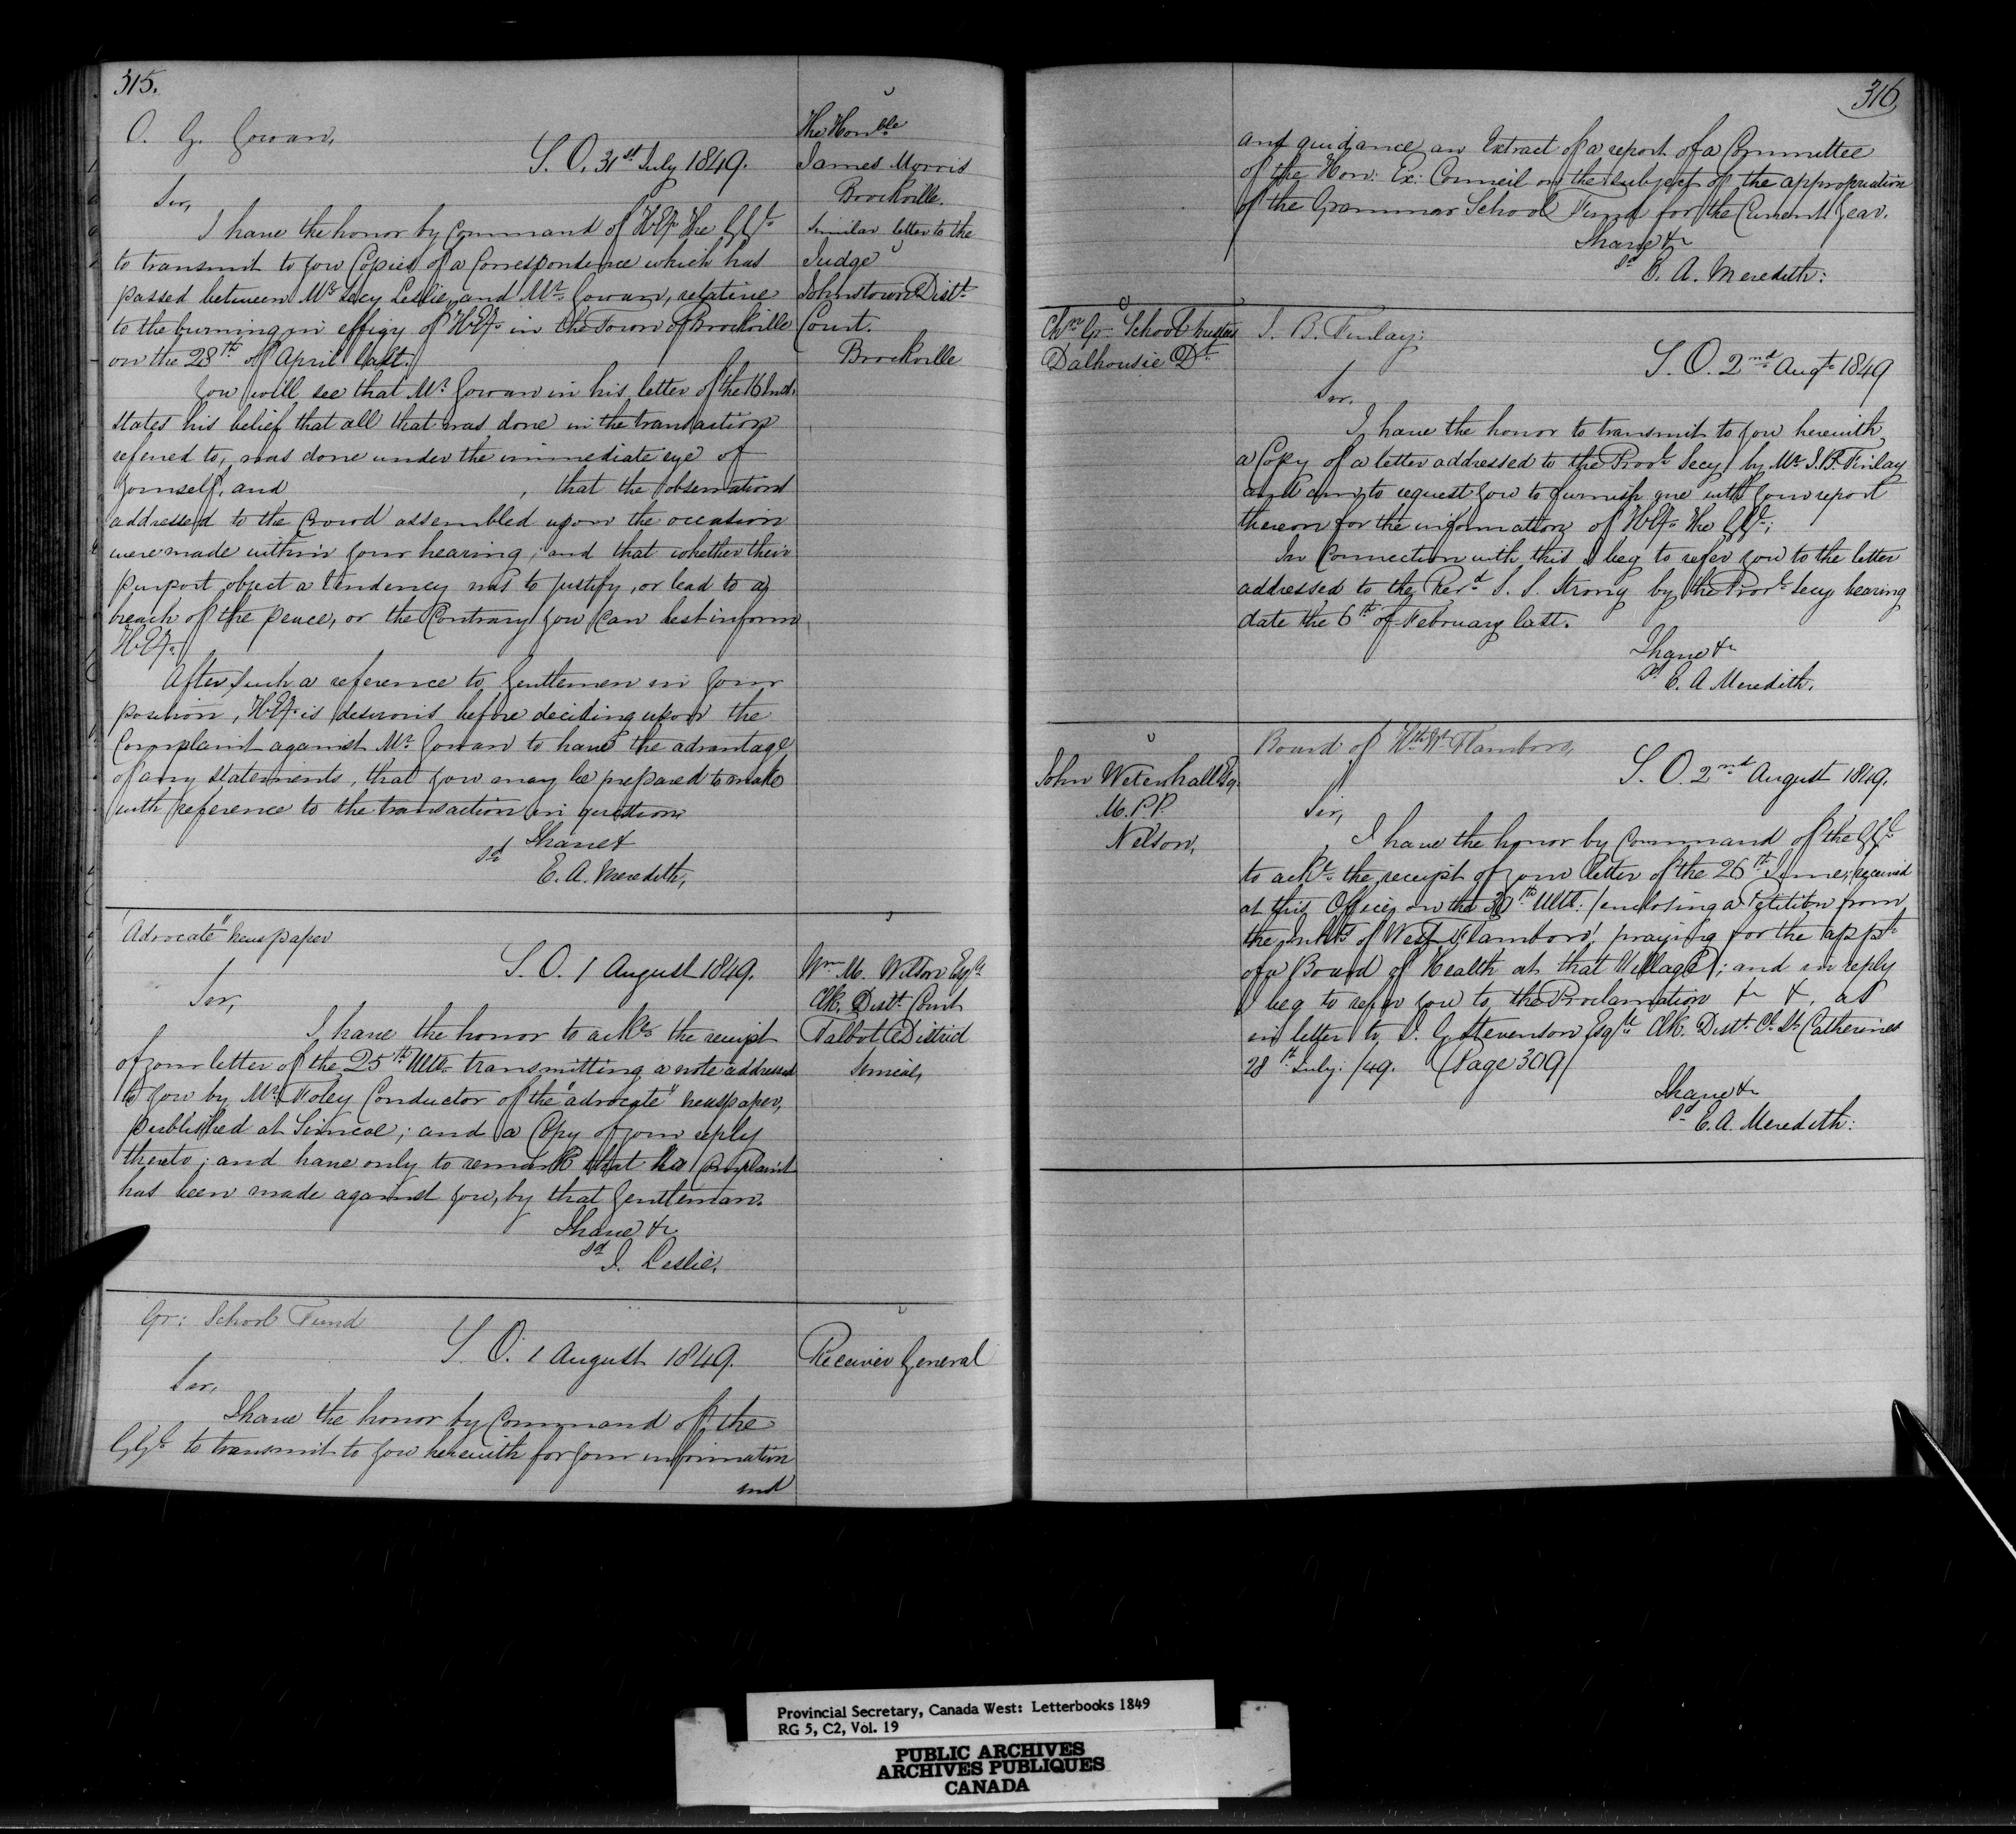 315.
O. G. Gowan,
S. O. 31st July 1849.
The Honble
James Morris
Brockville.
Similar letter to the
Judge
Johnstown Distt
Court.
Brockville
Sir,
I have the honor by Command of H.Ex. The GGl
to transmit to you Copies of a Correspondence which has
passed between Mr Secy Leslie, and Mr Gowan, relative
to the burning in effigy of H.Ex. in the Town of Brockville
on the 28th of April last.
You will see that Mr Gowan in his letter of the 16 Inst.
states his belief that all that was done in the transaction
referred to, was done under the immediate eye of
yourself, and , that the observations
addressed to the Crowd assembled upon the occasion
were made within your hearing, and that whether their
purport object a tendency was to justify, or lead to a
breach of the peace, or the Contrary you can best inform
H.Ex.
After such a reference to Gentlemen in your
position, H.Ex. is desirous before deciding upon the
Complaint against Mr Gowan to have the advantage
of any statements, that you may be prepared to make
with reference to the transaction in question
I have &
sd E. A. Meredith,
"Advocate" Newspaper
S. O. 1 August 1849.
Wm M. Wilson Esqre
Clk. Distt Court
Talbot District
Simcoe,
Sir,
I have the honor to acke the receipt
of your letter of the 25th Ulto transmitting a note addressed
to you by Mr Foley Conductor of the "advocate" newspaper,
published at Simcoe; and a Copy of your reply
thereto; and have only to remark that no Complaint
has been made against you, by that Gentleman.
I have &c
sd J. Leslie.
Gr: School Fund
S. O. 1 August 1849.
Receiver General
Sir,
I have the honor by Command of the
GGl to transmit to you herewith for your information
and
316
and guidance an Extract of a report of a Committee
of the Hon: Ex: Council on the subject of the appropriation
of the Grammar School Fund for the Current Year.
I have &c
sd E. A. Meredith:
Chn Gr. School trustees
Dalhousie Dt
J. B. Finlay:
S. O. 2nd Augt 1849
Sir,
I have the honor to transmit to you herewith
a Copy of a letter addressed to the Provl Secy by Mr J. B. Finlay
and am to request you to furnish me with your report
thereon for the information of H.Ex. The GGl;
In Connection with this I beg to refer you to the letter
addressed to the Revd S. S. Strong by the Provl Secy bearing
date the 6th of February last.
I have &c
sd E. A. Meredith.
John Wetenhall Esq.
M.P.P.
Nelson,
Board of Hlth Wt Flamboro,
S. O. 2nd August 1849.
Sir,
I have the honor by Command of the GGl
to acke the receipt of your letter of the 26th June, received
at this Office, on the 30th Ulto: / enclosing a Petition from
the Inhts of West Flamboro', praying for the appt
of a Board of Health at that Village; and in reply
I beg to refer you to the Proclamation &c &, as
in letter to J. G. Stevenson Esqre Clk. Distt Ct St Catherines
28th July. /49. (Page 309/
I have &c
sd E. A. Meredith:
Provincial Secretary, Canada West: Letterbooks 1849
RG 5, C2, Vol. 19
PUBLIC ARCHIVES
ARCHIVES PUBLIQUES
CANADA